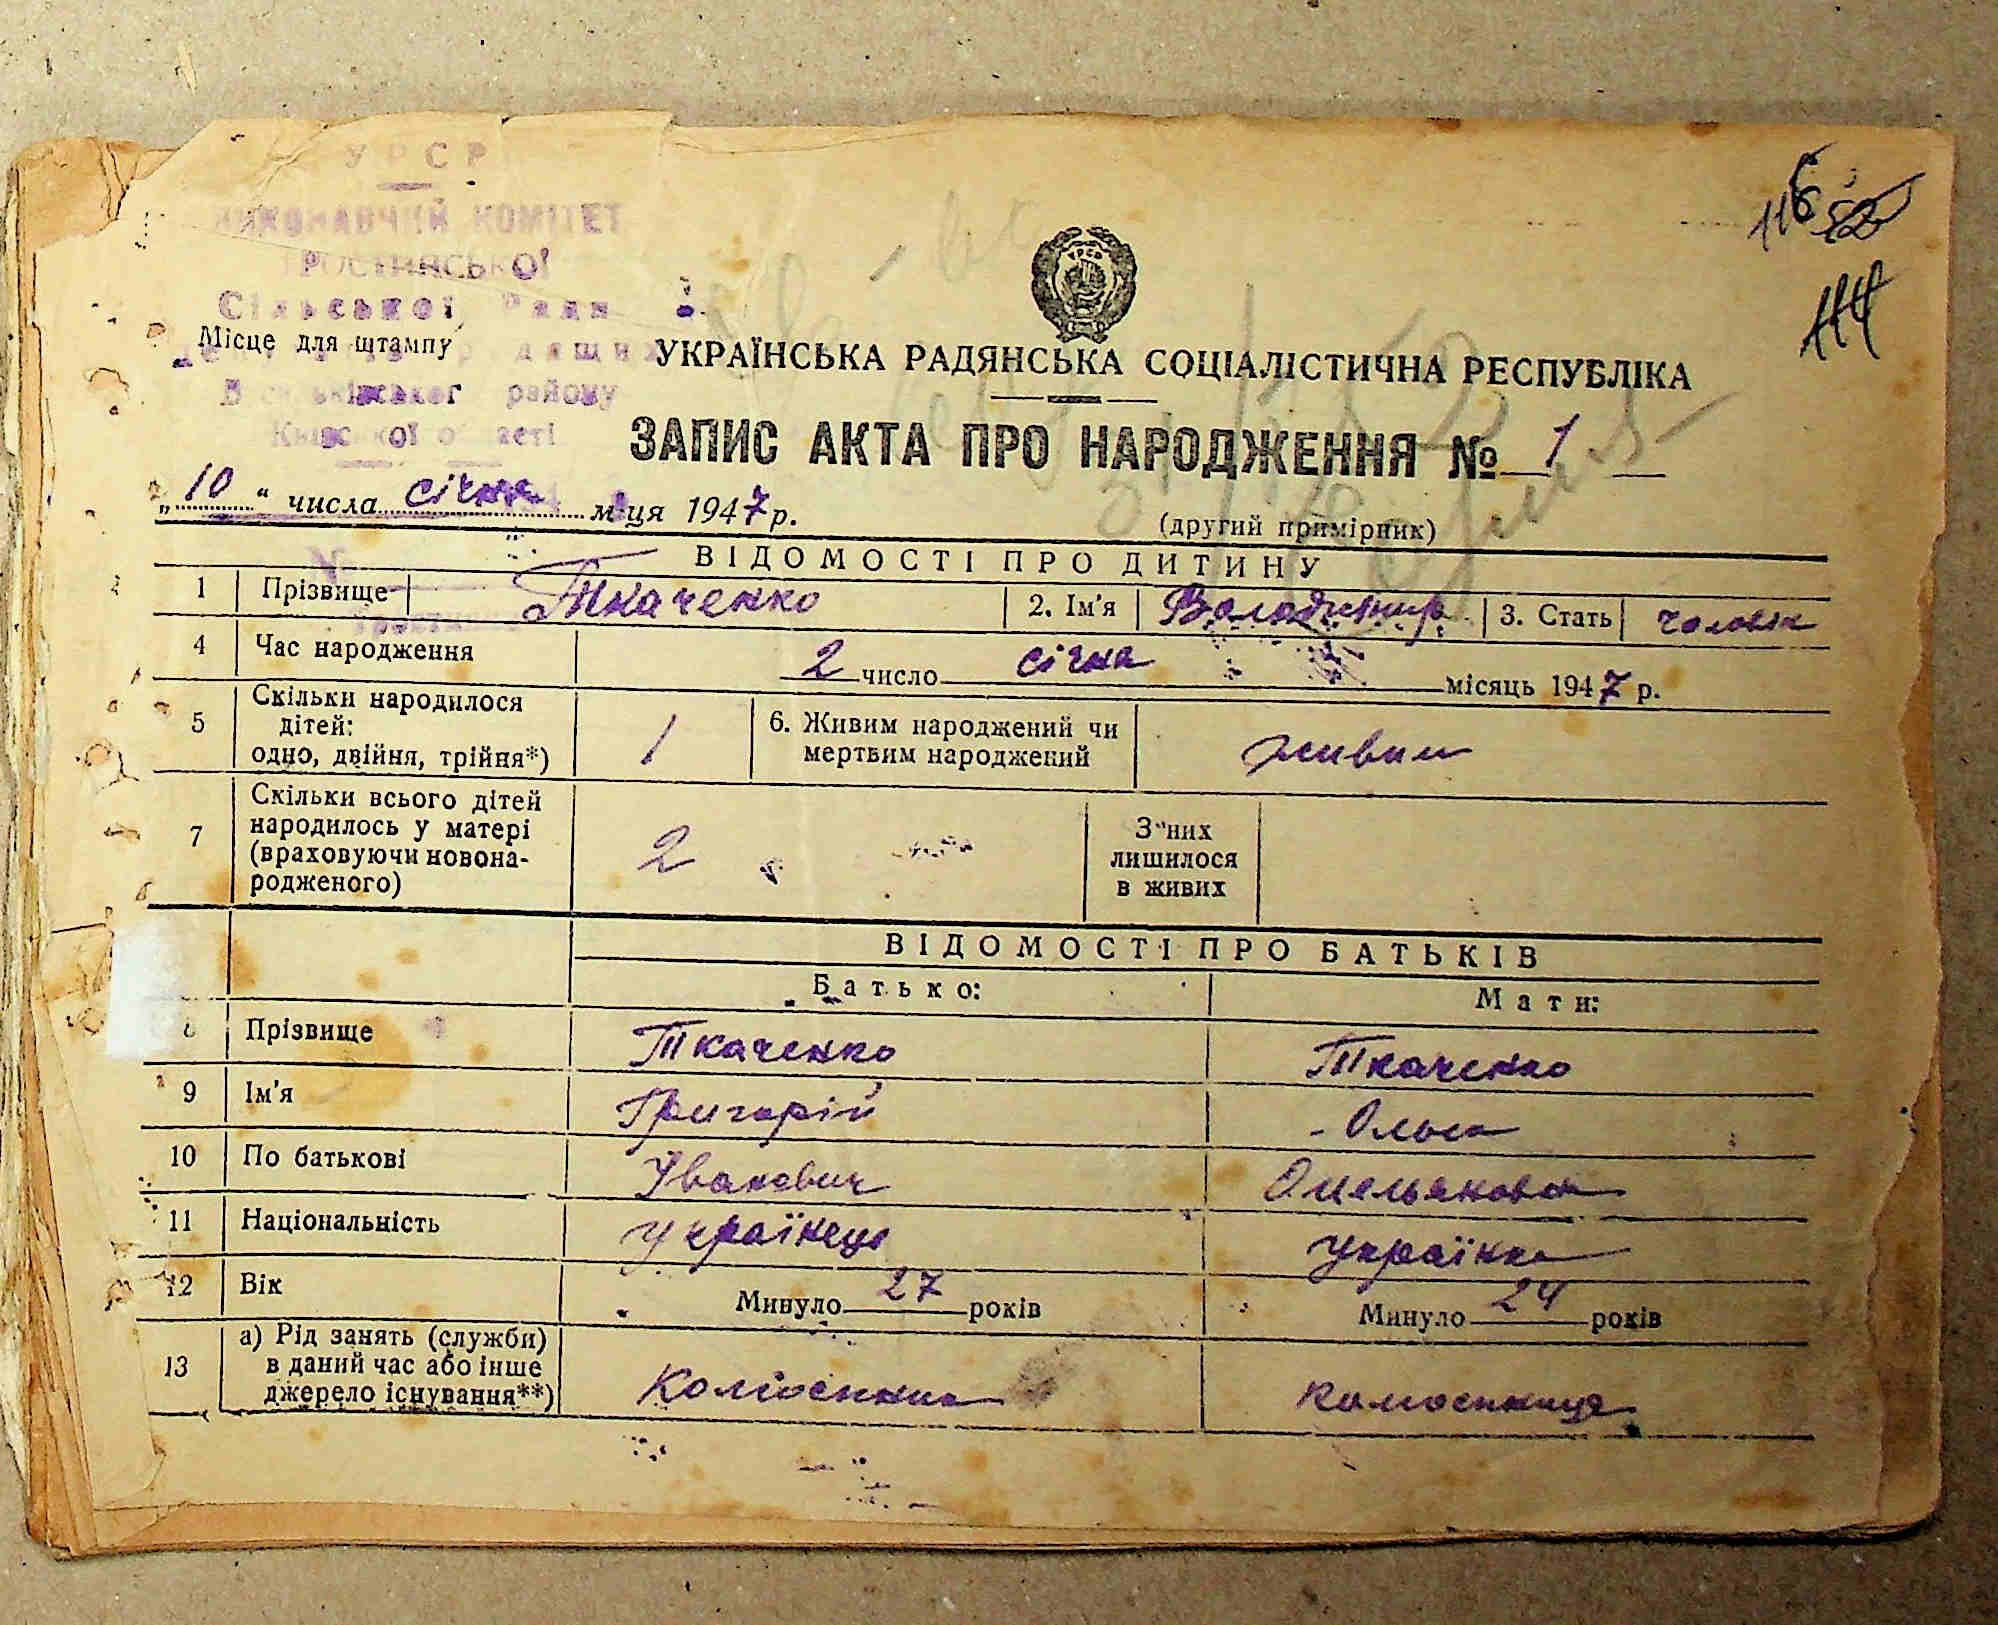 УРСР
ВИКОНАВЧИЙ КОМІТЕТ
РОСТИНСЬКОЇ
Сільської Ради
Місце для штампу
Васильківського району
Київської області
116 52
114
УКРАЇНСЬКА РАДЯНСЬКА СОЦІАЛІСТИЧНА РЕСПУБЛІКА
ЗАПИС АКТА ПРО НАРОДЖЕННЯ № 1
„10“ числа січня м-ця 1947 р.
(другий примірник)
ВІДОМОСТІ ПРО ДИТИНУ
1 Прізвище Ткаченко 2. Ім'я Володимир 3. Стать чоловік
4 Час народження 2 число січня місяць 1947 р.
5 Скільки народилося дітей: одно, двійня, трійня*) 1 6. Живим народжений чи мертвим народжений живим
7 Скільки всього дітей народилось у матері (враховуючи новонародженого) 2 З них лишилося в живих
ВІДОМОСТІ ПРО БАТЬКІВ
Батько: Мати:
8 Прізвище Ткаченко Ткаченко
9 Ім'я Григорій Ольга
10 По батькові Іванович Омельянова
11 Національність Українець Українка
12 Вік Минуло 27 років Минуло 24 років
13 а) Рід занять (служби) в даний час або інше джерело існування**) Колгоспник колгоспниця